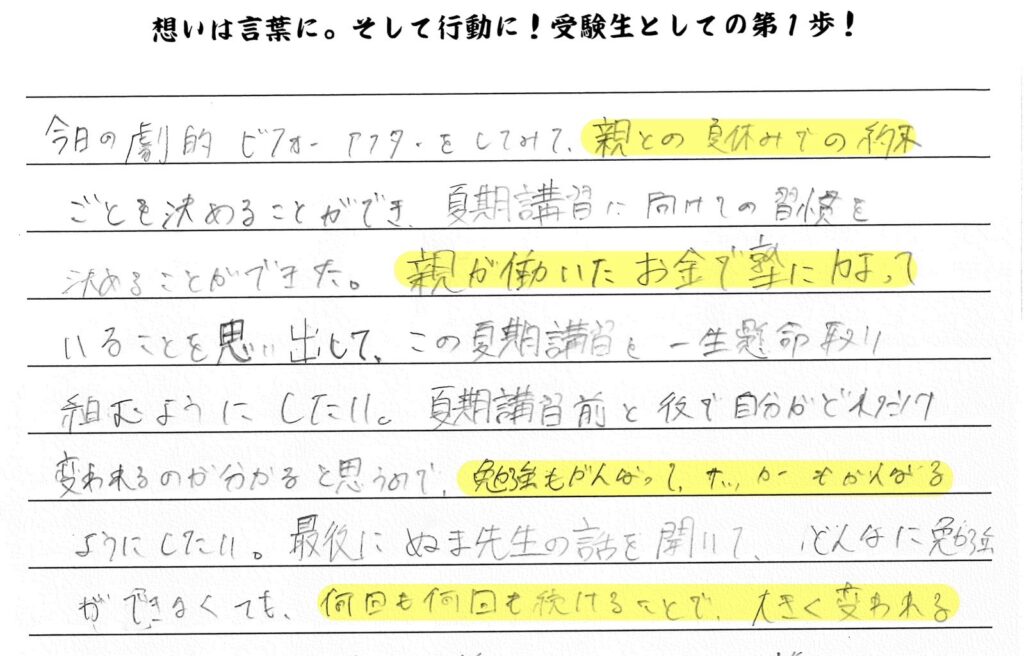 想いは言葉に。そして行動に！受験生としての第１歩！
今日の劇的ビフォーアフターをしてみて、親との夏休みでの約束
ごとを決めることができ、夏期講習に向けての習慣を
決めることができた。親が働いたお金で塾に通って
いることを思い出して、この夏期講習を一生懸命取り
組むようにしたい。夏期講習前と後で自分がどれだけ
変われるのか分かると思うので、勉強もがんばって、サッカーもがんばる
ようにしたい。最後にぬま先生の話を聞いて、どんなに勉強
ができなくても、何回も何回も続けることで、大きく変われる